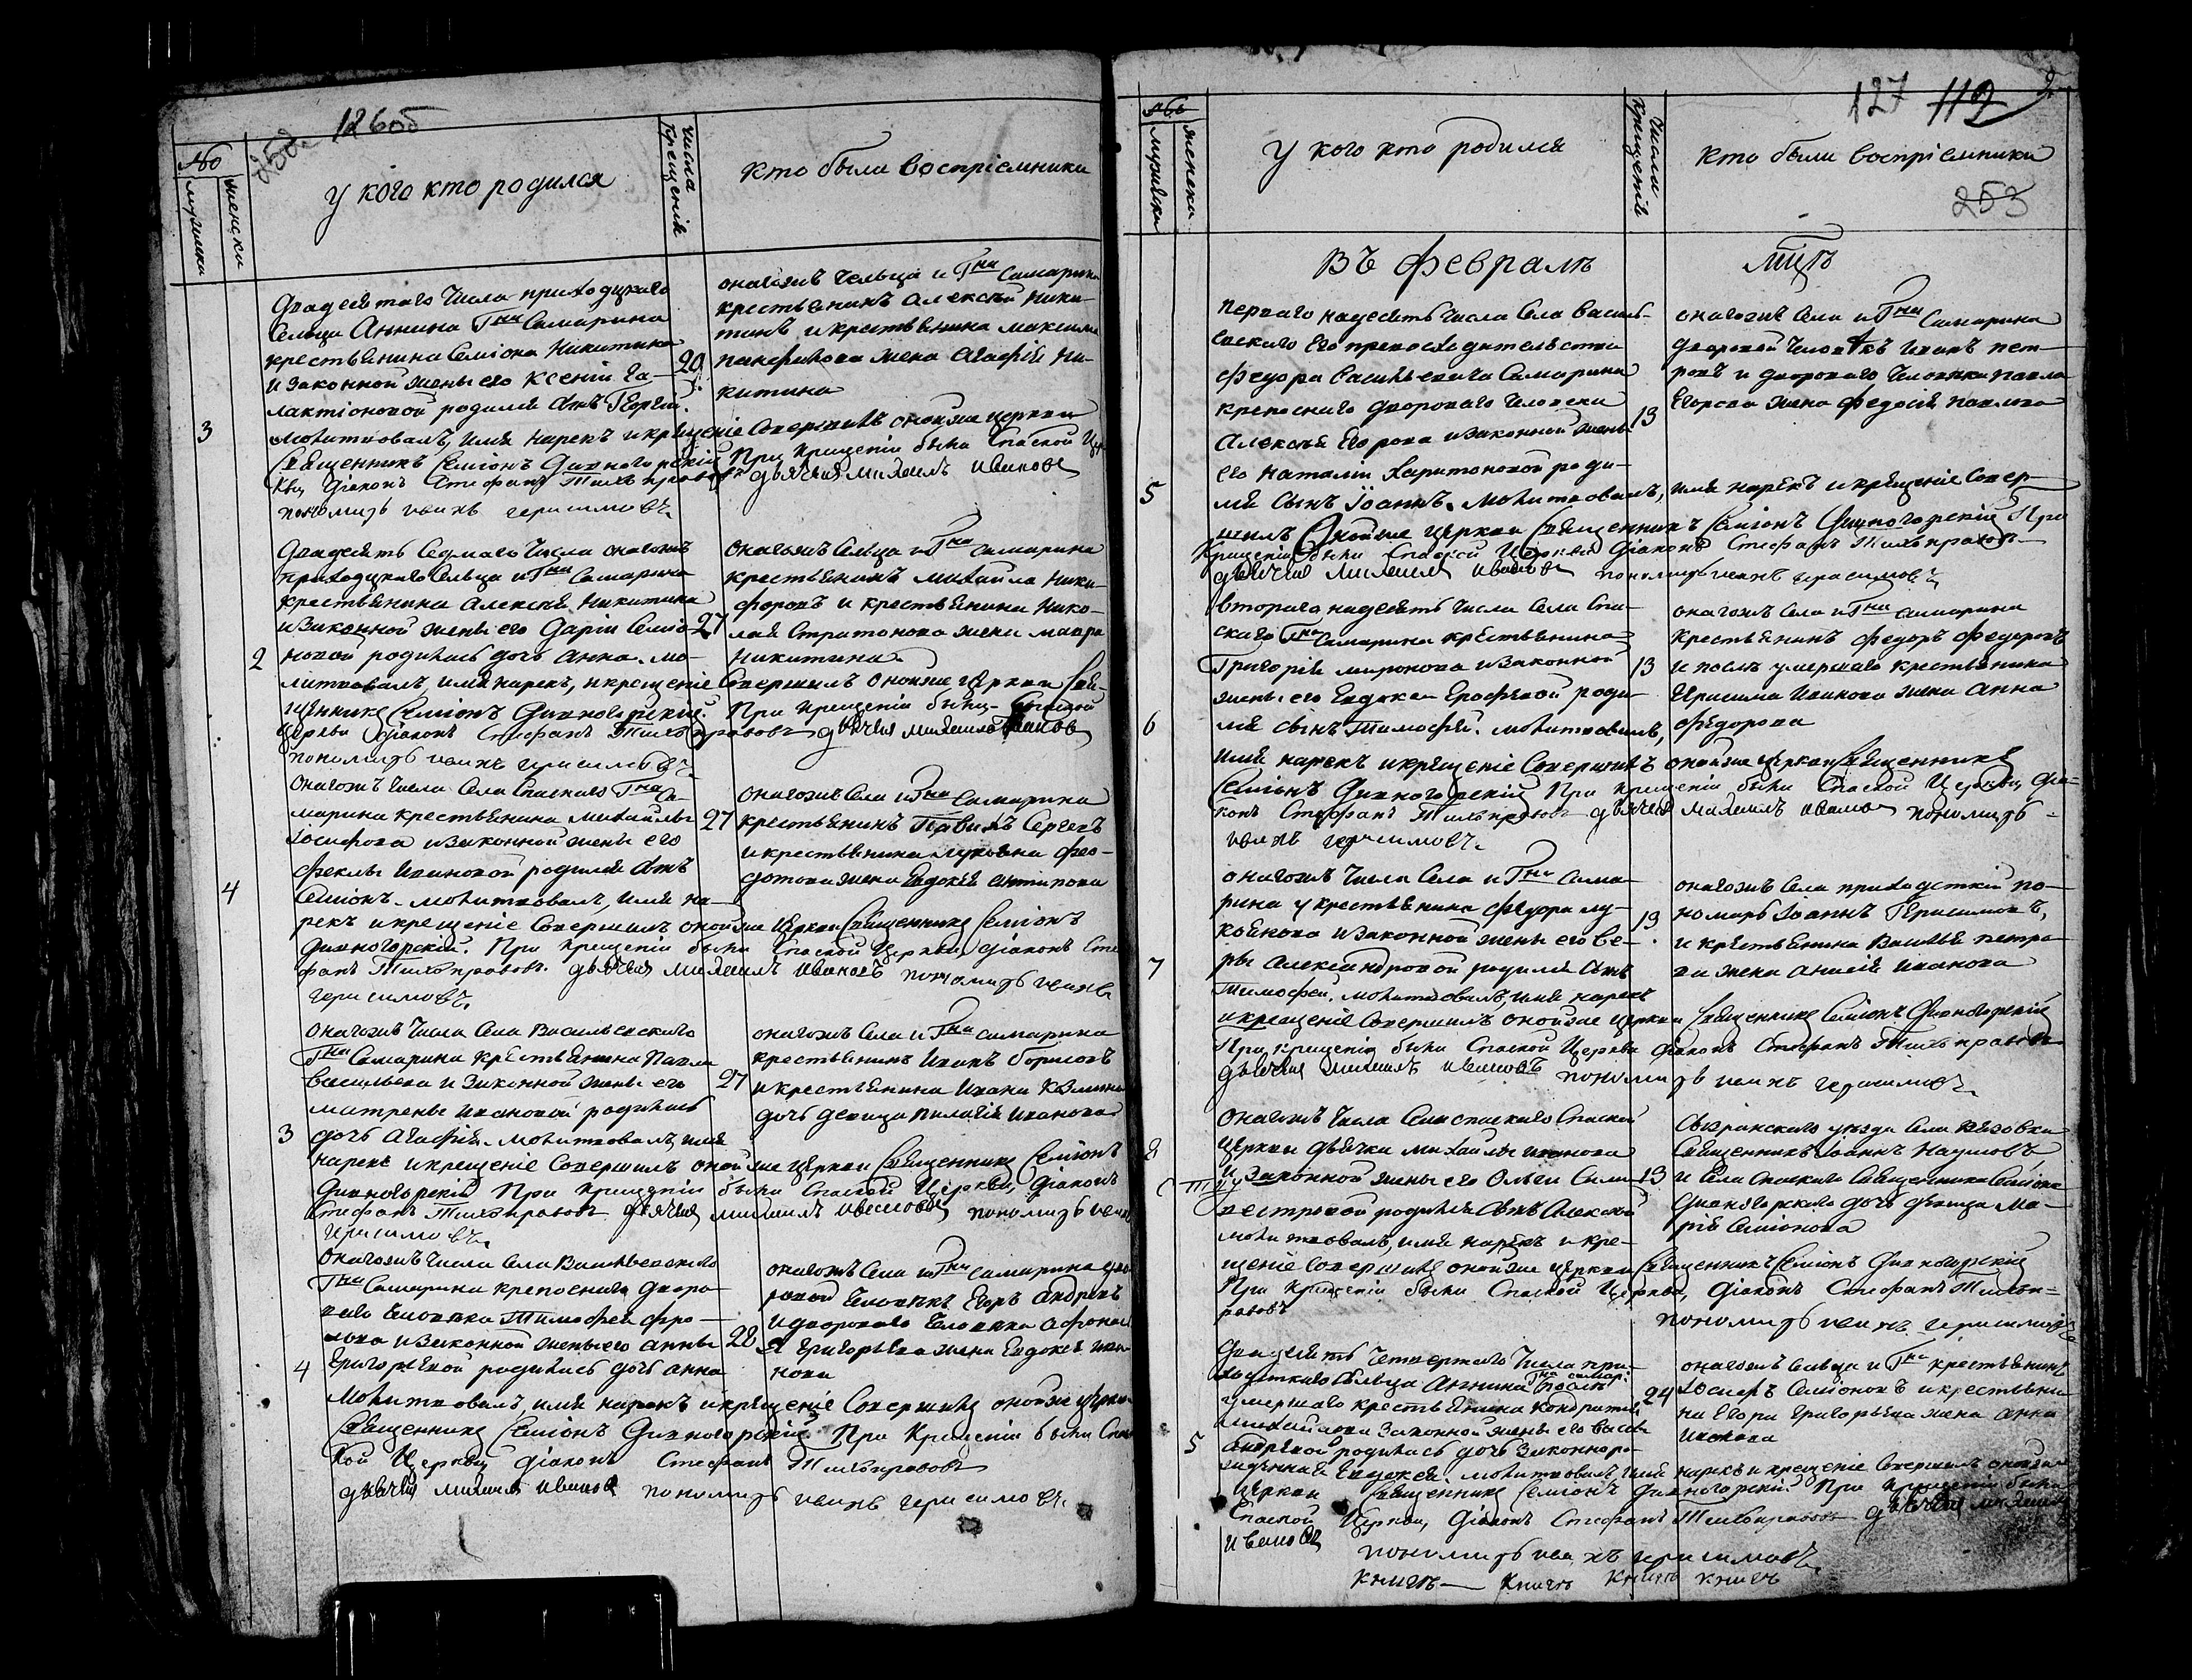 126об
№
мужески
женски
У кого кто родился
числа крещенія
кто были воспріемники
Двадесятаго числа приходцкаго
Сельца Аннина Гна Самарина
крестьянина Семіона Никитина
и законной жены его Ксеніи Га-
лактіоновой родился сынъ Георгій.
3
молитвовалъ, имя нарекъ и крещеніе Совершилъ оной же церкви
Священникъ Семіонъ Дивногорскій При крещеніи были Спаской Цер
кви Діаконъ Стефанъ Тихонравовъ дьячекъ михаилъ ивановъ
пономарь иванъ герасимовъ.
29
онагожъ сельца и Гна Самарина
крестьянинъ Алексѣй Ники-
тинъ и крестьянина максима
панфилова жена Агафія Ни-
китина
Двадесять Седмаго числа онагожъ
приходцкаго Сельца и Гна Самарина
крестьянина Алексѣя Никитина
и законной жены его Даріи Семіо-
новой родилась дочь Анна. мо-
2
литвовалъ, имя нарекъ, и крещеніе Совершилъ оной же церкви Свя-
щенникъ Семіонъ Дивногорскій. При крещеніи были Спаской
Церкви Діаконъ Стефанъ Тихонравовъ дьячекъ михаилъ Ивановъ
пономарь иванъ герасимовъ.
27
Онагожъ Сельца и Гна Самарина
крестьянинъ михайла Ники-
форовъ и крестьянина Нико-
лая Стратонова жена мавра
Никитина
Онагожъ числа Села Спаскаго Гна Са-
марина крестьянина михайлы
Іосифова и законной жены его
феклы Ивановой родился сынъ
4
Семіонъ. молитвовалъ, имя на-
рекъ и крещеніе Совершилъ оной же церкви Священникъ Семіонъ
Дивногорскій. При крещеніи были Спаской Церкви Діаконъ Сте
фанъ Тихонравовъ. дьячекъ михаилъ ивановъ пономарь иванъ
герасимовъ.
27
онагожъ Села и Гна Самарина
крестьянинъ Сергѣевъ
и крестьянина фео-
дотова жена Евдокія Антипова
онагожъ числа Села Васильевскаго
Гна Самарина крестьянина Павла
васильева и законной жены его
матрены Ивановой родилась
3
дочь Агафія. молитвовалъ, имя
нарекъ и крещеніе Совершилъ оной же церкви Священникъ Семіонъ
Дивногорскій При крещеніи были Спаской Церкви Діаконъ
Стефанъ Тихонравовъ дьячекъ михаилъ ивановъ пономарь иванъ
герасимовъ.
27
онагожъ Села и Гна Самарина
крестьянинъ Иванъ Борисовъ
и крестьянина Ивана Козмина
дочь девица Пилагія Иванова
Онагожъ числа Села Васильевскаго
Гна Самарина крепоснаго дворо-
ваго человѣка Тимофея Фро-
лова и законной жены его анны
4
Григорьевой родилась дочь анна
Молитвовалъ, имя нарекъ и крещеніе Совершилъ оной же церкви
Священникъ Семіонъ Дивногорскій. При Крещеніи были Спас
кой Церкви Діаконъ Стефанъ Тихонравовъ
дьячекъ михаилъ ивановъ пономарь иванъ герасимовъ.
28
онагожъ Села и Гна Самарина дво
ровой человѣкъ Егоръ Андреевъ
и двороваго человѣка Афонась
я Григорьева жена Евдокія ива-
нова
127 119 2
№
мужески
женски
У кого кто родился
числа крещенія
кто были воспріемники
253
Въ Февралѣ мцѣ
перваго надесять числа Села Василь-
евскаго Его превосходительства
Федора Васильевича Самарина
крепоснаго двороваго человека
Алексѣя Егорова и законной жены
его Наталіи Харитоновой роди-
5
лся сынъ Іоаннъ. молитвовалъ, имя нарекъ и крещеніе Совер-
шилъ Оной же церкви Священникъ Семіонъ Дивногорскій При
Крещеніи были Спаской Церкви Діаконъ Стефанъ Тихонравовъ
дьячекъ михаилъ ивановъ пономарь иванъ герасимовъ.
13
онагожъ Села и Гна Самарина
дворовой человѣкъ Иванъ пет-
ровъ и двороваго человѣка павла
Егорова жена Федосія павлова
втораго надесять числа Села Спа-
скаго Гна Самарина крестьянина
Григорія миронова и законной
жены его Евдокеи Ерофеевой роди-
6
лся сынъ Тимофей. молитвовалъ,
имя нарекъ и крещеніе Совершилъ оной же церкви Священникъ
Семіонъ Дивногорскій При крещеніи были Спаской Церкви Діа-
конъ Стефанъ Тихонравовъ дьячекъ михаилъ ивановъ пономарь
иванъ герасимовъ.
13
онагожъ Села и Гна Самарина
крестьянинъ Федоръ Федоровъ
и послѣ умершаго крестьянина
Герасима Иванова жена Анна
Федорова
онагожъ числа Села и Гна Сама-
рина у крестьянина Федора лу-
коянова и законной жены его Ве-
ры Александровой родился сынъ
7
Тимофей. молитвовалъ, имя нарекъ
и крещеніе Совершилъ оной же церкви Священникъ Семіонъ Дивногорскій
При крещеніи были Спаской Церкви Діаконъ Стефанъ Тихонравовъ
дьячекъ михаилъ ивановъ пономарь иванъ герасимовъ.
13
онагожъ Села приходскій по-
номарь Іоаннъ Герасимовъ,
и крестьянина Василья петро-
ва жена Анисія Иванова
Онагожъ числа Села Спаскаго Спаской
церкви дьячка михайлы иванова
8
и законной жены его Ольги Силь-
вестровой родился сынъ Алексей
молитвовалъ, имя нарекъ и кре-
щеніе Совершилъ оной же церкви Священникъ Семіонъ Дивногорскій
При Крещеніи были Спаской Церкви, Діаконъ Стефанъ Тихон=
равовъ пономарь иванъ герасимовъ
13
Сызранскаго уезда Села Вязовки
Священникъ Іоаннъ Наумовъ
и Села Спаскаго Священника Семіона
Дивногорскаго дочь девица Ма-
рія Семіонова
Двадесять четвертаго числа при-
ходскаго Сельца Аннина Гна Самар: послѣ
умершаго крестьянина Кондратія
законной жены его
5
Андреевой родилась дочь законноро-
жденная Евдокея. молитвовалъ, имя нарекъ и крещеніе Совершилъ оной же
церкви Священникъ Семіонъ Дивногорскій При крещеніи были
Спаской Церкви, Діаконъ Стефанъ Тихонравовъ дьячекъ михаилъ
ивановъ пономарь иванъ герасимовъ.
24
онагожъ сельца и Гна крестьянинъ
Іосифъ Семіоновъ и крестьяни-
на Егора Григорьева жена анна
Иванова